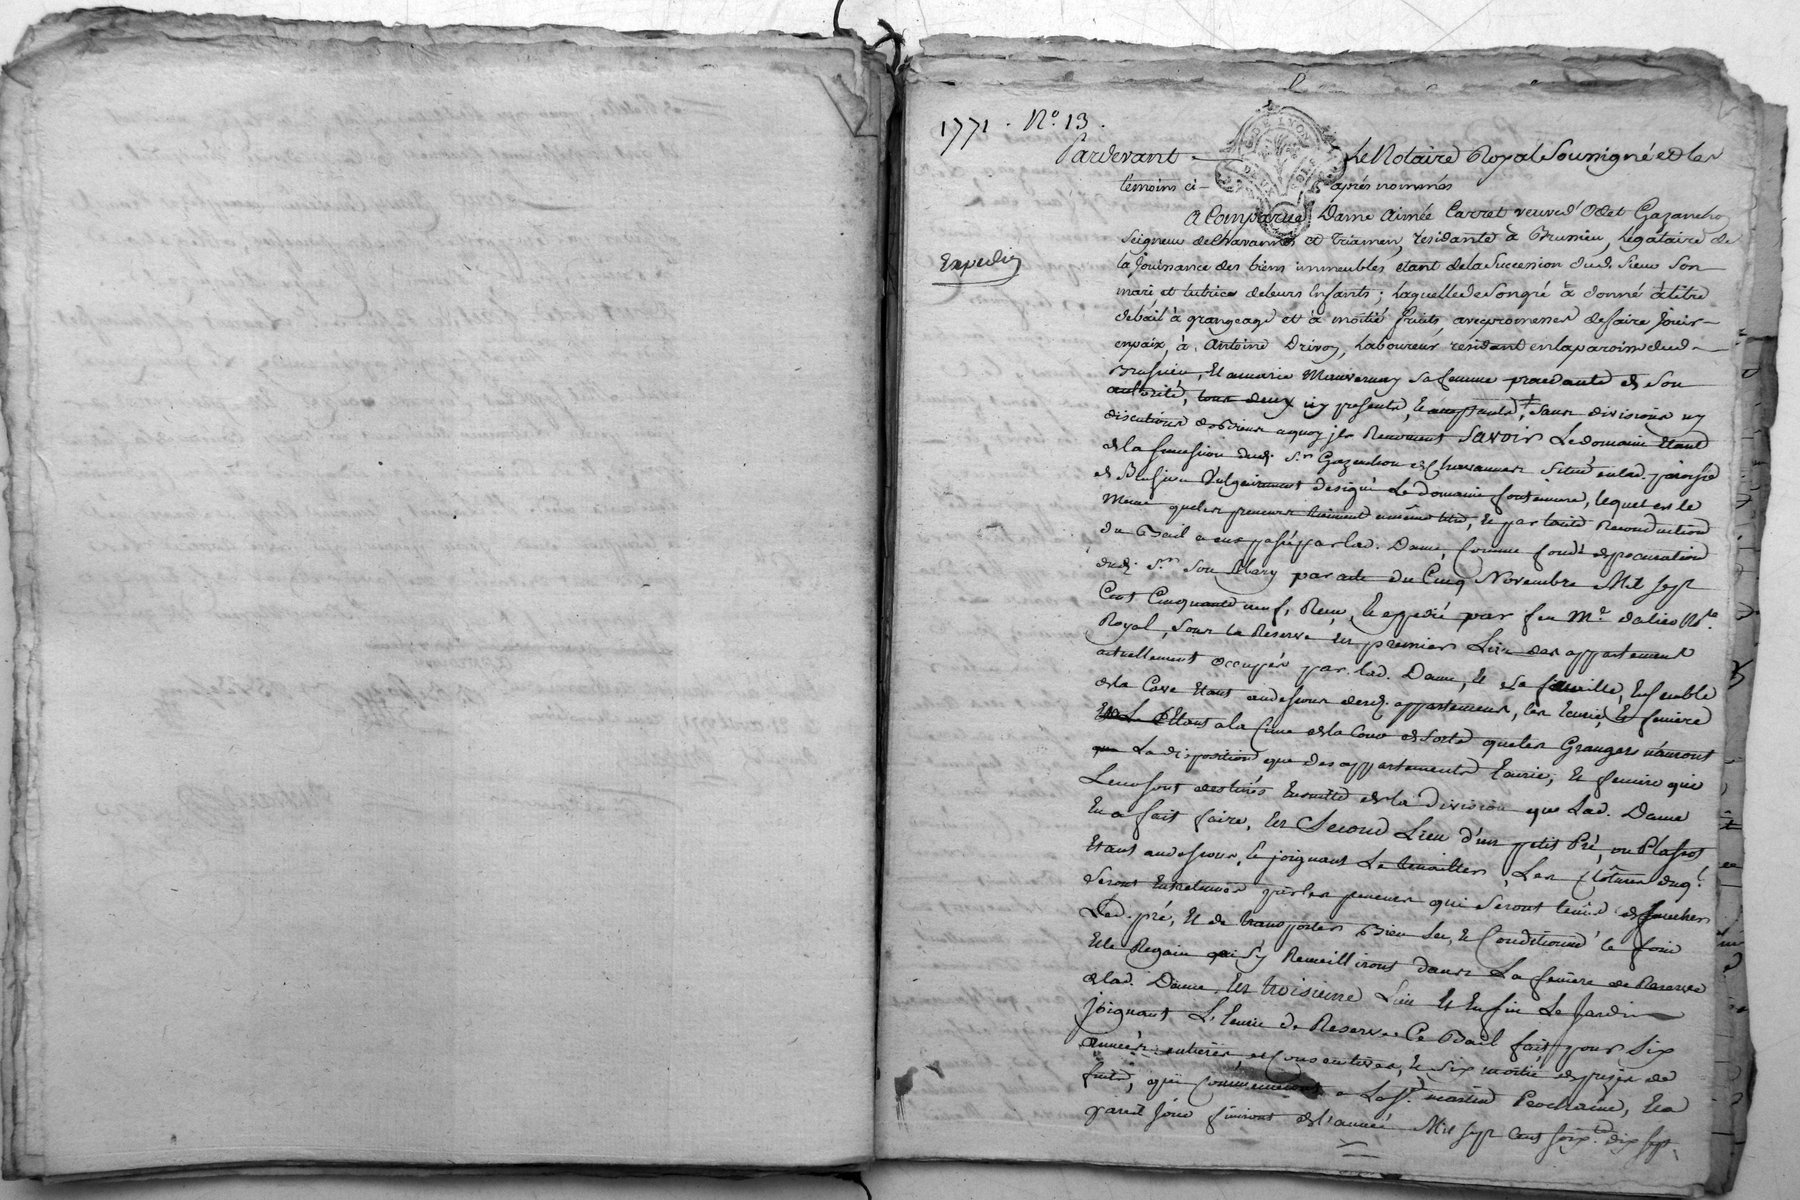 1771 . No. 13 .
GDE LYON
DEUX SOLS
Pardevant Le Notaire Royal Soussigné et les
temoins ci- aprés nommés
A Comparue Dame Aimée Carret veuve d'Odet Gazanchon
Seigneur de Chavannes et Triamen, residante à Brussieu, Legataire de
Expedié
la Jouissance des biens immeubles etant de la Succession dud. Sieur Son
mari et tutrice de leurs Enfants ; Laquelle de Son gré à donné à titre
de bail à grangeage et à moitié fruits, avec promesse de faire Jouir
en paix, à Antoine Drivon, Laboureur residant en la paroisse dud.
Brussieu, Et a marie Mauvernay Sa femme procedante de Son
authorité, tous deux icy presents, & acceptants, Sans division ny
discution de Biens a quoy ils Renoncent Savoir Le domaine Etant
de la Succession dud. Sr. Gazanchon de Chavannes Situé en lad. paroisse
de Brussieu Vulgairement designé Le domaine , lequel est le
Meme que les preneurs tiennent a même titre, & par tacite Reconduction
du Bail a eux passé par lad. Dame, Comme fondée de procuration
dud. Sr. Son Mary par acte du Cinq Novembre Mil Sept
Cent Cinquante neuf, Reçu, & expedié par feu Me. dalier Nre.
Royal, Sous la Reserve En premier Lieu des appartements
actuellement occupés par lad. Dame, & Sa famille, Ensemble
de la Cave Etant au dessous desd. appartements, les Ecurie, & feniere
Etant a la Cime de la Cour de Sorte que les Grangers n'auront
La disposition que des appartements Ecurie, & feniere qui
Leur sont destinés Ensuite de la division que Lad. Dame
En a fait faire, En Second Lieu d'un petit Pré, ou Plassot
Etant au dessous, & joignant Le , Les Clôtures duql.
Seront Entretenues par les preneurs qui Seront tenus de faucher
Led. pré, Et de transporter Bien Sec, & Conditionné le foin
Et le Regain qui S'y Recueilliront dans La feniere de Reserve
de lad. Dame, En troisieme Lieu Et Enfin Le Jardin
Joignant L'Ecurie de Reserve Ce Bail fait pour Six
années entieres, et Consecutives, & Six moitié de prises de
fruits, qui Commenceront a La St. martin Prochaine, Et a
pareil Jour finiront de l'année Mil Sept Cent Soixte. dix Sept,